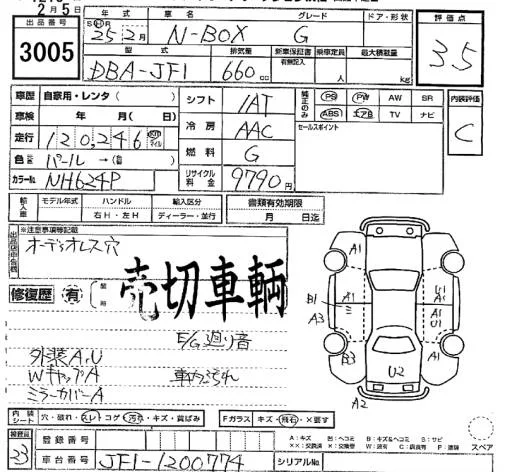 2月5日
出品番号
3005
年式 車名 グレード ドア・形状
25年2月 N-BOX G
型式 排気量 新車保証書 乗車定員 最大積載量
有無記入
DBA-JF1 660cc 人 kg
評価点
3.5
車歴 自家用・レンタ( )
車検 年 月( )日
走行 120,246 km マイル
色 パール→( )
カラーNo NH624P
シフト IAT
冷房 AAC
燃料 G
リサイクル料金 9790円
純正のみ PS PW AW SR
ABS エアB TV ナビ
セールスポイント
内装評価
C
輸入車 モデル年式 ハンドル 輸入区分 書類有効期限
右H・左H ディーラー・並行 月 日迄
出品店申告欄
※注意事項等記載
オーディオレス穴
修復歴 有 箇所
売切車輌
E/G廻り音
外装A,U
WキャップA
ミラーカバーA
A1
A1
B1
A3
B3
A1
A1
U1
U1
A1
A1
A2
U2
内装シート 穴・破れ・スレ・コゲ・汚れ・キズ・黄ばみ Fガラス キズ・飛石・×要す
スペア
A:キズ B:ヘコミ B:キズ&ヘコミ S:サビ
××:交換済 X:交換要 W:波有 C:腐食有 P:塗装
検査員
33
登録番号
車台番号 JF1-1200774 シリアルNo.